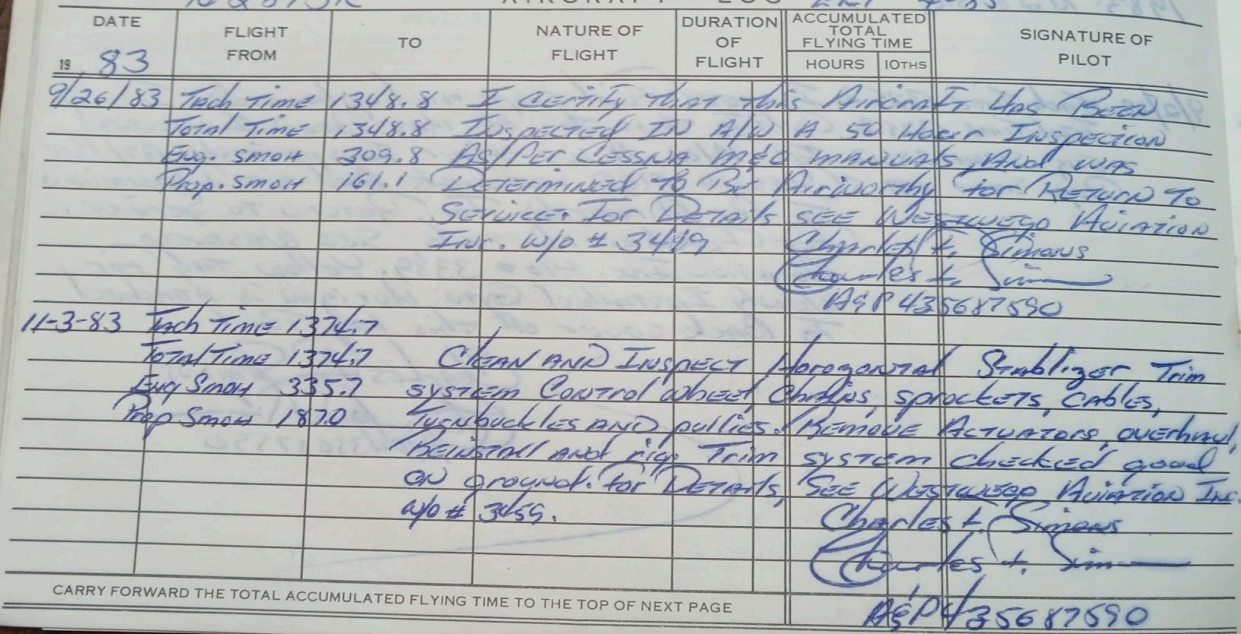 AIRCRAFT LOG
DATE FLIGHT FROM TO NATURE OF FLIGHT DURATION OF FLIGHT ACCUMULATED TOTAL FLYING TIME HOURS 10THS SIGNATURE OF PILOT
19 83
9/26/83 Tach Time 1348.8 I Certify that this Aircraft Has Been
Total Time 1348.8 Inspected IN A/W A 50 Hour Inspection
Eng. SMOH 309.8 AS/Per Cessna M&O manuals And was
Prop. SMOH 161.1 Determined to Be Airworthy for Return To
Service. For Details SEE Westwego Aviation
Inc. W/O # 3449 Charles L. Simons
Charles L. Sim
A&P 435687590
11-3-83 Tach Time 1374.7
Total Time 1374.7 Clean AND Inspect Horogontal Stablizer Trim
Eng SMOH 335.7 system Control wheel, Chains, sprockets, cables,
Prop SMOH 187.0 Turnbuckles AND pullies. Remove Actuators, overhaul,
Reinstall and rig. Trim system checked good
ON ground. for Details, SEE Westwego Aviation Inc.
w/o # 3459. Charles L. Simons
Charles L. Sim
A&P 435687590
CARRY FORWARD THE TOTAL ACCUMULATED FLYING TIME TO THE TOP OF NEXT PAGE